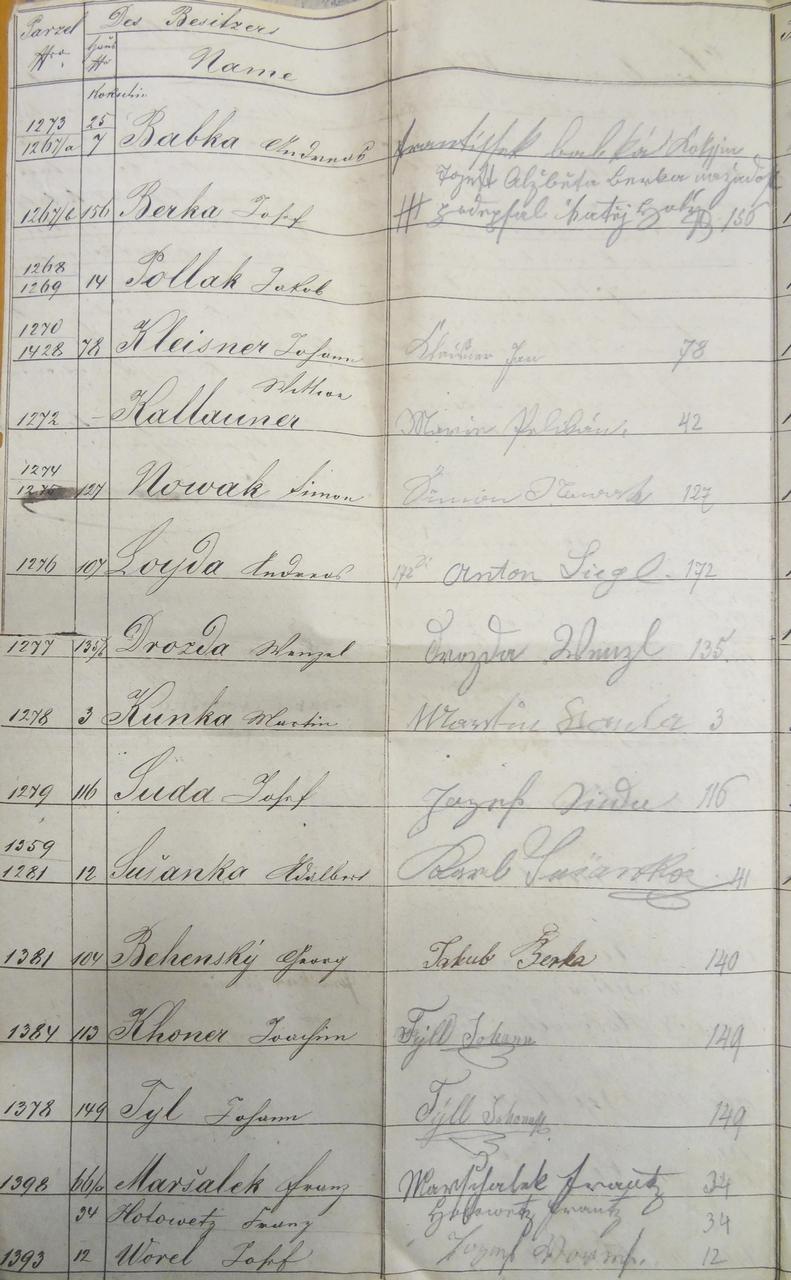 Parzel Des Besitzers
Nro. Haus Nro Name
1273 25
1267/a 7 Babka Andreas František babka
Alžběta berka
1267/b 156 Berka Josef podepsal 156
1268
1269 14 Pollak Jakob
1270
1428 78 Kleisner Johann Jan 78
Wittwe
1272 - Kallauner Marie Pelikán. 42
1274
1275 127 Nowak Simon Šimon Nowak 127
1276 107 Loyda Andreas 172 Anton Siegl. 172
1277 135/b Drozda Wenzel Drozda Wenzl 135.
1278 3 Kunka Martin Martin 3
1279 116 Suda Josef Jozef Suda 116
1359
1281 12 Sušanka Adalbert Karl Sušanka 41
1381 104 Behenský Georg Jakub Berka 140
1384 113 Khoner Joachim Tÿll Johann 149
1378 149 Tyl Johann Tÿll Johann 149
1398 66/a Maršalek Franz Marschalek Frantz 34
34 Hotowetz Franz Hotowetz Frantz 34
1393 12 Worel Josef 12